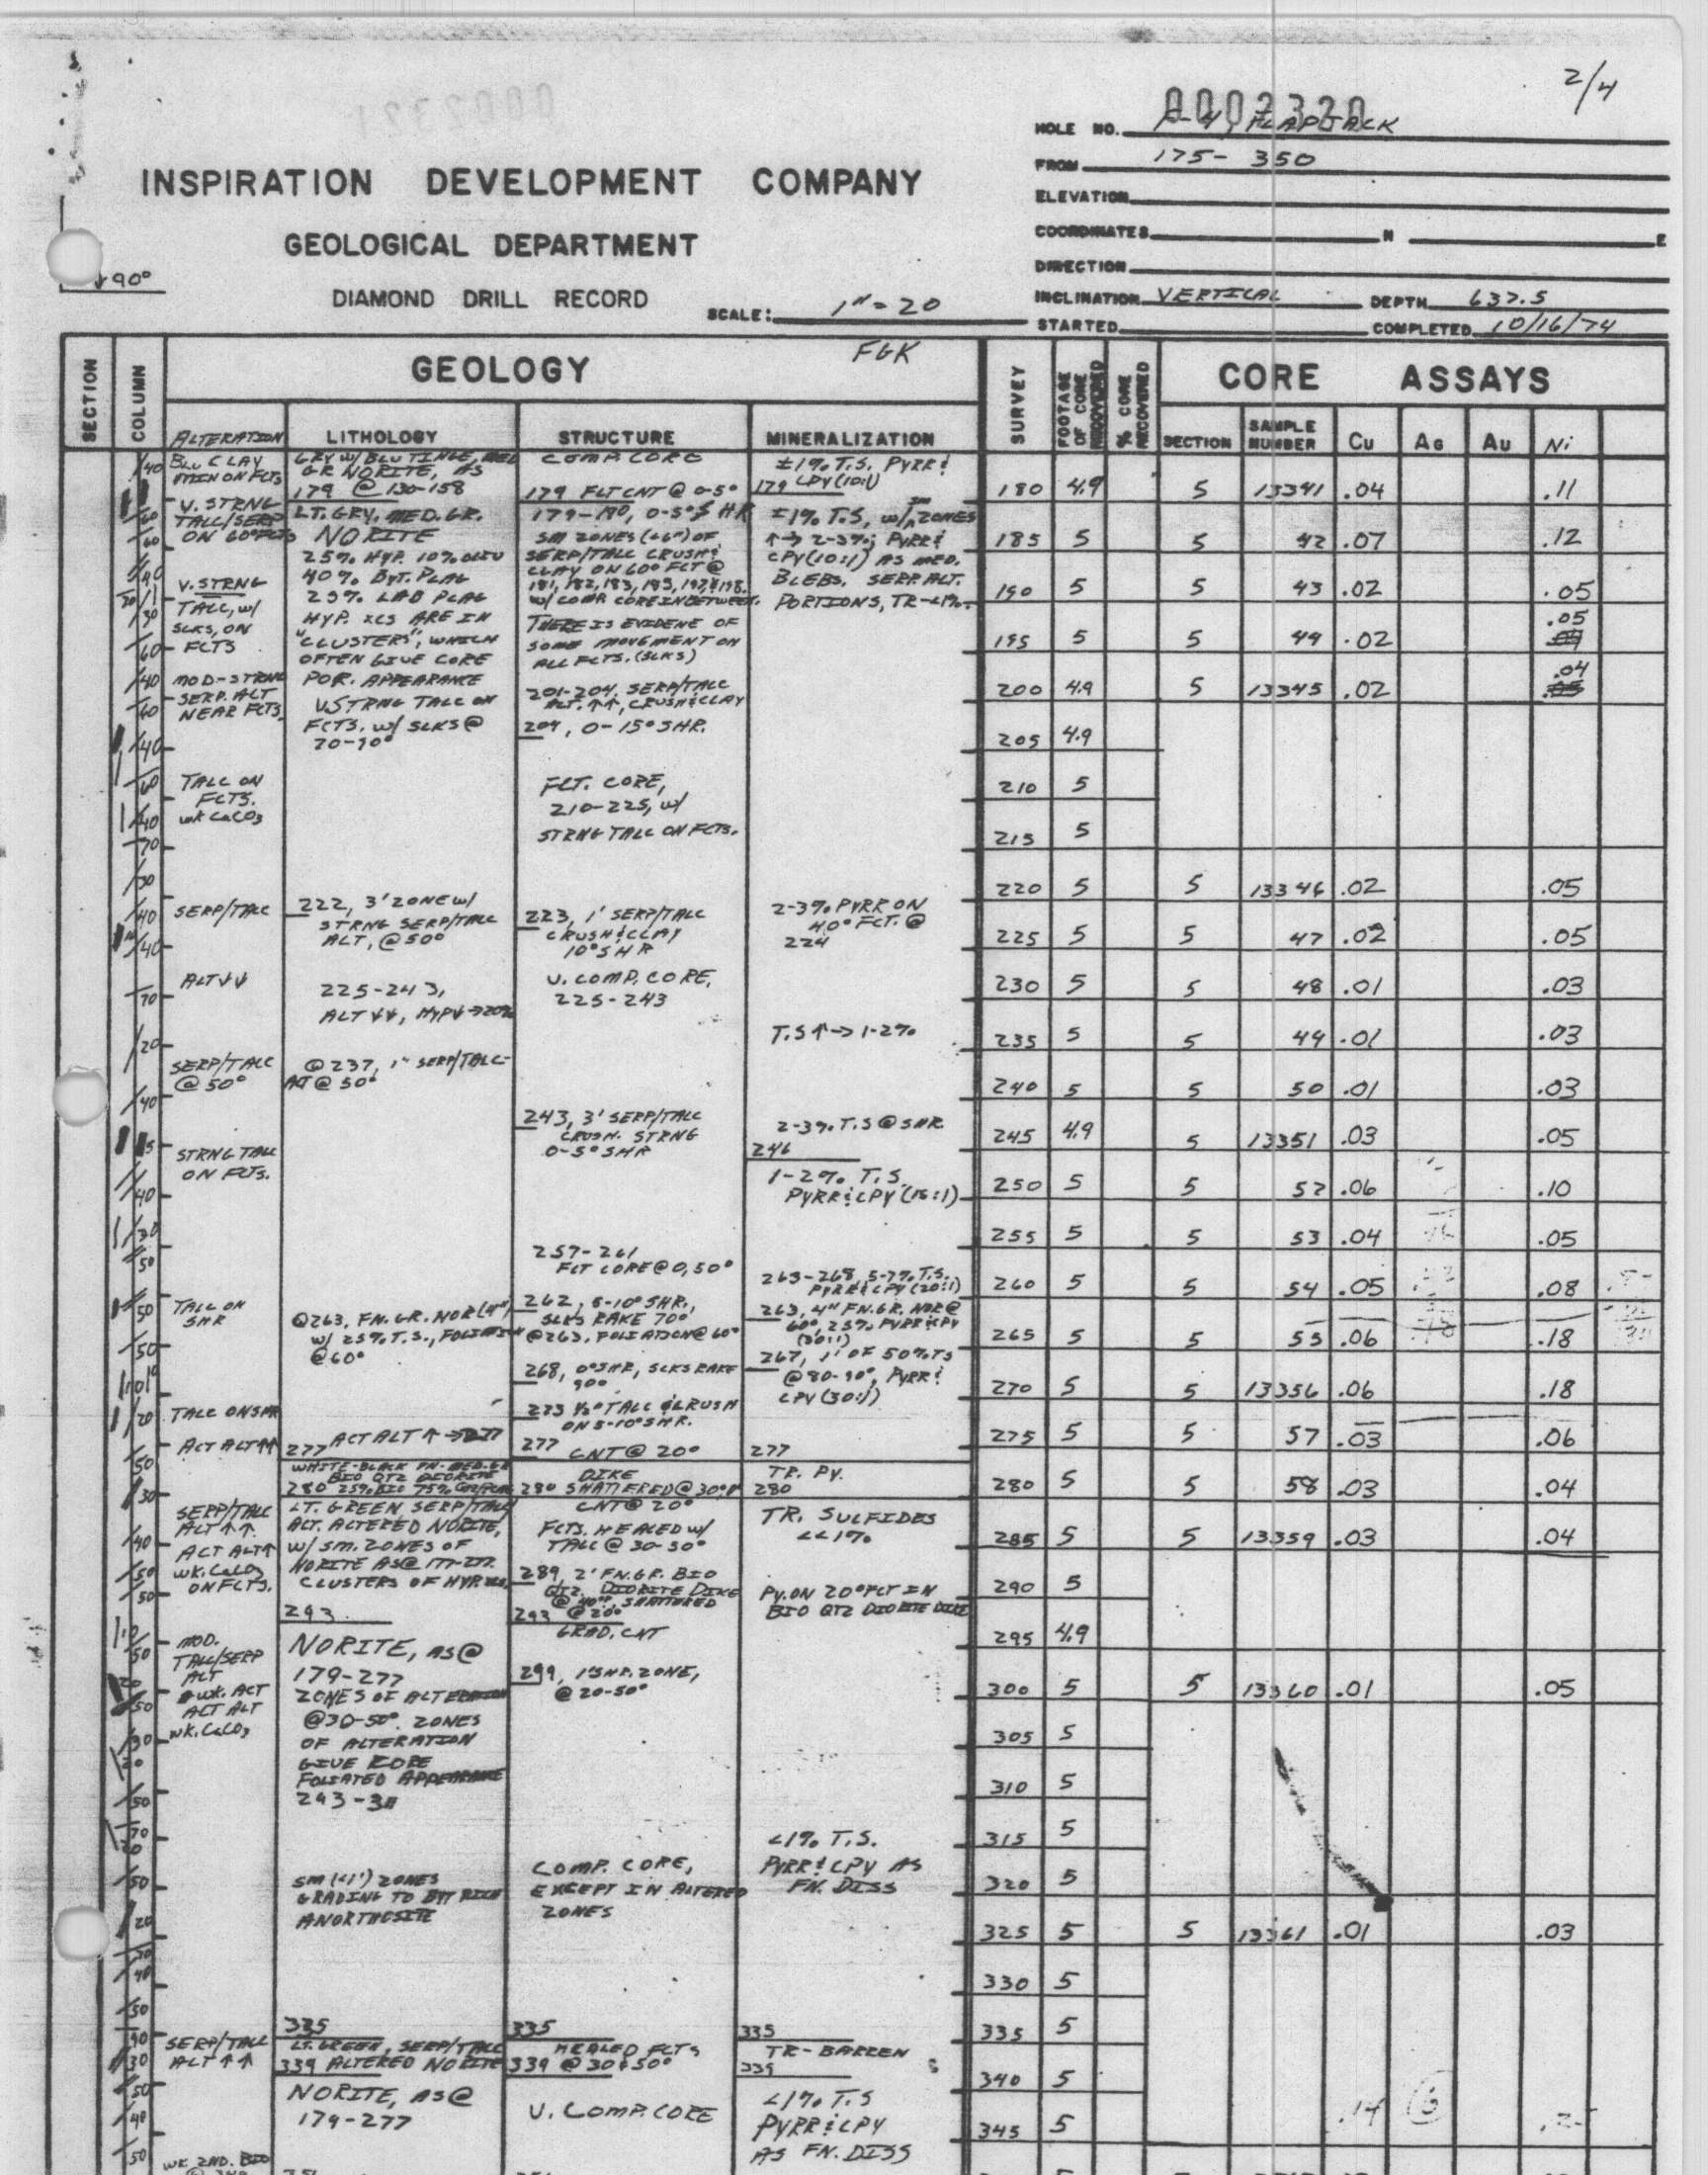 2/4
0002320
HOLE NO. FLAPJACK
FROM 175- 350
INSPIRATION DEVELOPMENT COMPANY
ELEVATION
GEOLOGICAL DEPARTMENT
COORDINATES N E
DIRECTION
90°
DIAMOND DRILL RECORD
SCALE: 1"=20
INCLINATION VERTICAL DEPTH 637.5
STARTED COMPLETED 10/16/74
SECTION
COLUMN
GEOLOGY
FGK
SURVEY
FOOTAGE OF CORE RECOVERED
% CORE RECOVERED
CORE ASSAYS
ALTERATION LITHOLOGY STRUCTURE MINERALIZATION
SECTION SAMPLE NUMBER Cu Ag Au Ni
BLU CLAY
ON FLTS
V. STRNG
TALC/SERP
ON 60° FLTS
V. STRNG
TALC, W/
SLKS, ON
FCTS
MOD-STRNG
SERP. ALT
NEAR FCTS.
TALC ON
FCTS.
WK CaCO3
SERP/TALC
ALT↓↓
SERP/TALC
@ 50°
STRNG TALC
ON FCTS.
TALC ON
SHR
TALC ON SHR
ACT ALT↑↑
SERP/TALC
ALT↑↑
ACT ALT↑
WK. CaCO3
ON FLTS.
MOD.
TALC/SERP
ALT
WK. ACT
ACT ALT
WK. CaCO3
SERP/TALC
ALT↑↑
WK 2ND. BIO
GRY W/ BLU TINGE, MED
GR NORITE, AS
179 @ 130-158
LT. GRY. MED. GR.
NORITE
25% HYP. 10% OLIV
40% BYT. PLAG
25% LAB PLAG
HYP. XCS ARE IN
"CLUSTERS", WHICH
OFTEN GIVE CORE
POR. APPEARANCE
V.STRNG TALC ON
FCTS, W/ SLKS @
70-90°
222, 3' ZONE W/
STRNG SERP/TALC
ALT, @ 50°
225-243,
ALT↓↓, HYP↓→20%
@ 237, 1" SERP/TALC-
ALT @ 50°
@263, FN. GR. NOR (4")
W/ 25% T.S., FOLIATION
@ 60°
277 ACT ALT↑→277
WHITE-BLACK FN-MED. GR
BIO QTZ DIORITE
280 25% BIO 75%
LT. GREEN SERP/TALC
ALT. ALTERED NORITE,
W/ SM. ZONES OF
NORITE AS @ 177-277.
CLUSTERS OF HYP
293
NORITE, AS @
179-277
ZONES OF ALTERATION
@30-50°. ZONES
OF ALTERATION
GIVE CORE
FOLIATED APPEARANCE
293-311
SM (<1') ZONES
GRADING TO BYT RICH
ANORTHOSITE
335
LT. GREEN, SERP/TALC
339 ALTERED NORITE
NORITE, AS @
179-277
COMP. CORE
179 FLT CNT @ 0-5°
179-190, 0-5° SHR
SM ZONES (<6") OF
SERP/TALC CRUSH &
CLAY ON 60° FLT @
181, 182, 183, 193, 197, & 198.
W/ COMP. CORE IN BETWEEN.
THERE IS EVIDENCE OF
SOME MOVEMENT ON
ALL FCTS. (SLKS)
201-204, SERP/TALC
ALT.↑↑, CRUSH & CLAY
204, 0-15° SHR.
FCT. CORE,
210-225, W/
STRNG TALC ON FCTS.
223, 1' SERP/TALC
CRUSH & CLAY
10° SHR
V. COMP. CORE,
225-243
243, 3' SERP/TALC
CRUSH. STRNG
0-5° SHR
257-261
FCT CORE @ 0, 50°
262, 5-10° SHR.,
SLKS RAKE 70°
@263, FOLIATION @ 60°
268, 0° SHR, SLKS RAKE
90°
273 1/2" TALC & CRUSH
ON 5-10° SHR.
277 CNT @ 20°
DIKE
280 SHATTERED @ 30°
CNT @ 20°
FCTS. HEALED W/
TALC @ 30-50°
289, 2' FN. GR. BIO
QTZ. DIORITE DIKE
@ 40°, SHATTERED
293 @ 20°
GRAD. CNT
299, 1' SHR. ZONE,
@ 20-50°
COMP. CORE,
EXCEPT IN ALTERED
ZONES
335
HEALED FCTS
339 @ 30 & 50°
V. COMP. CORE
±1% T.S. PYRR &
179 CPY (10:1)
±1% T.S, W/ ZONES
↑→ 2-3%; PYRR &
CPY (10:1) AS MED.
BLEBS. SERP. ALT.
PORTIONS, TR-<1%.
2-3% PYRR ON
40° FCT. @
224
T.S↑→ 1-2%
2-3% T.S @ SHR
246
1-2% T.S.
PYRR & CPY (15:1)
263-268 5-7% T.S.
PYRR & CPY (20:1)
263, 4" FN. GR. NOR @
60°, 25% PYRR & CPY
(30:1)
267, 1' OF 50% TS
@ 80-90°, PYRR &
CPY (30:1)
277
TR. PY.
280
TR. SULFIDES
<<1%
PY. ON 20° FLT IN
BIO QTZ DIORITE DIKE
<1% T.S.
PYRR & CPY AS
FN. DISS
335
TR-BARREN
339
<1% T.S
PYRR & CPY
AS FN. DISS
180 4.9 5 13341 .04 .11
185 5 5 42 .07 .12
190 5 5 43 .02 .05
195 5 5 44 .02 .05
200 4.9 5 13345 .02 .04
205 4.9
210 5
215 5
220 5 5 13346 .02 .05
225 5 5 47 .02 .05
230 5 5 48 .01 .03
235 5 5 49 .01 .03
240 5 5 50 .01 .03
245 4.9 5 13351 .03 .05
250 5 5 52 .06 .10
255 5 5 53 .04 .05
260 5 5 54 .05 .08
265 5 5 55 .06 .18
270 5 5 13356 .06 .18
275 5 5 57 .03 .06
280 5 5 58 .03 .04
285 5 5 13359 .03 .04
290 5
295 4.9
300 5 5 13360 .01 .05
305 5
310 5
315 5
320 5
325 5 5 13361 .01 .03
330 5
335 5
340 5
345 5 .14